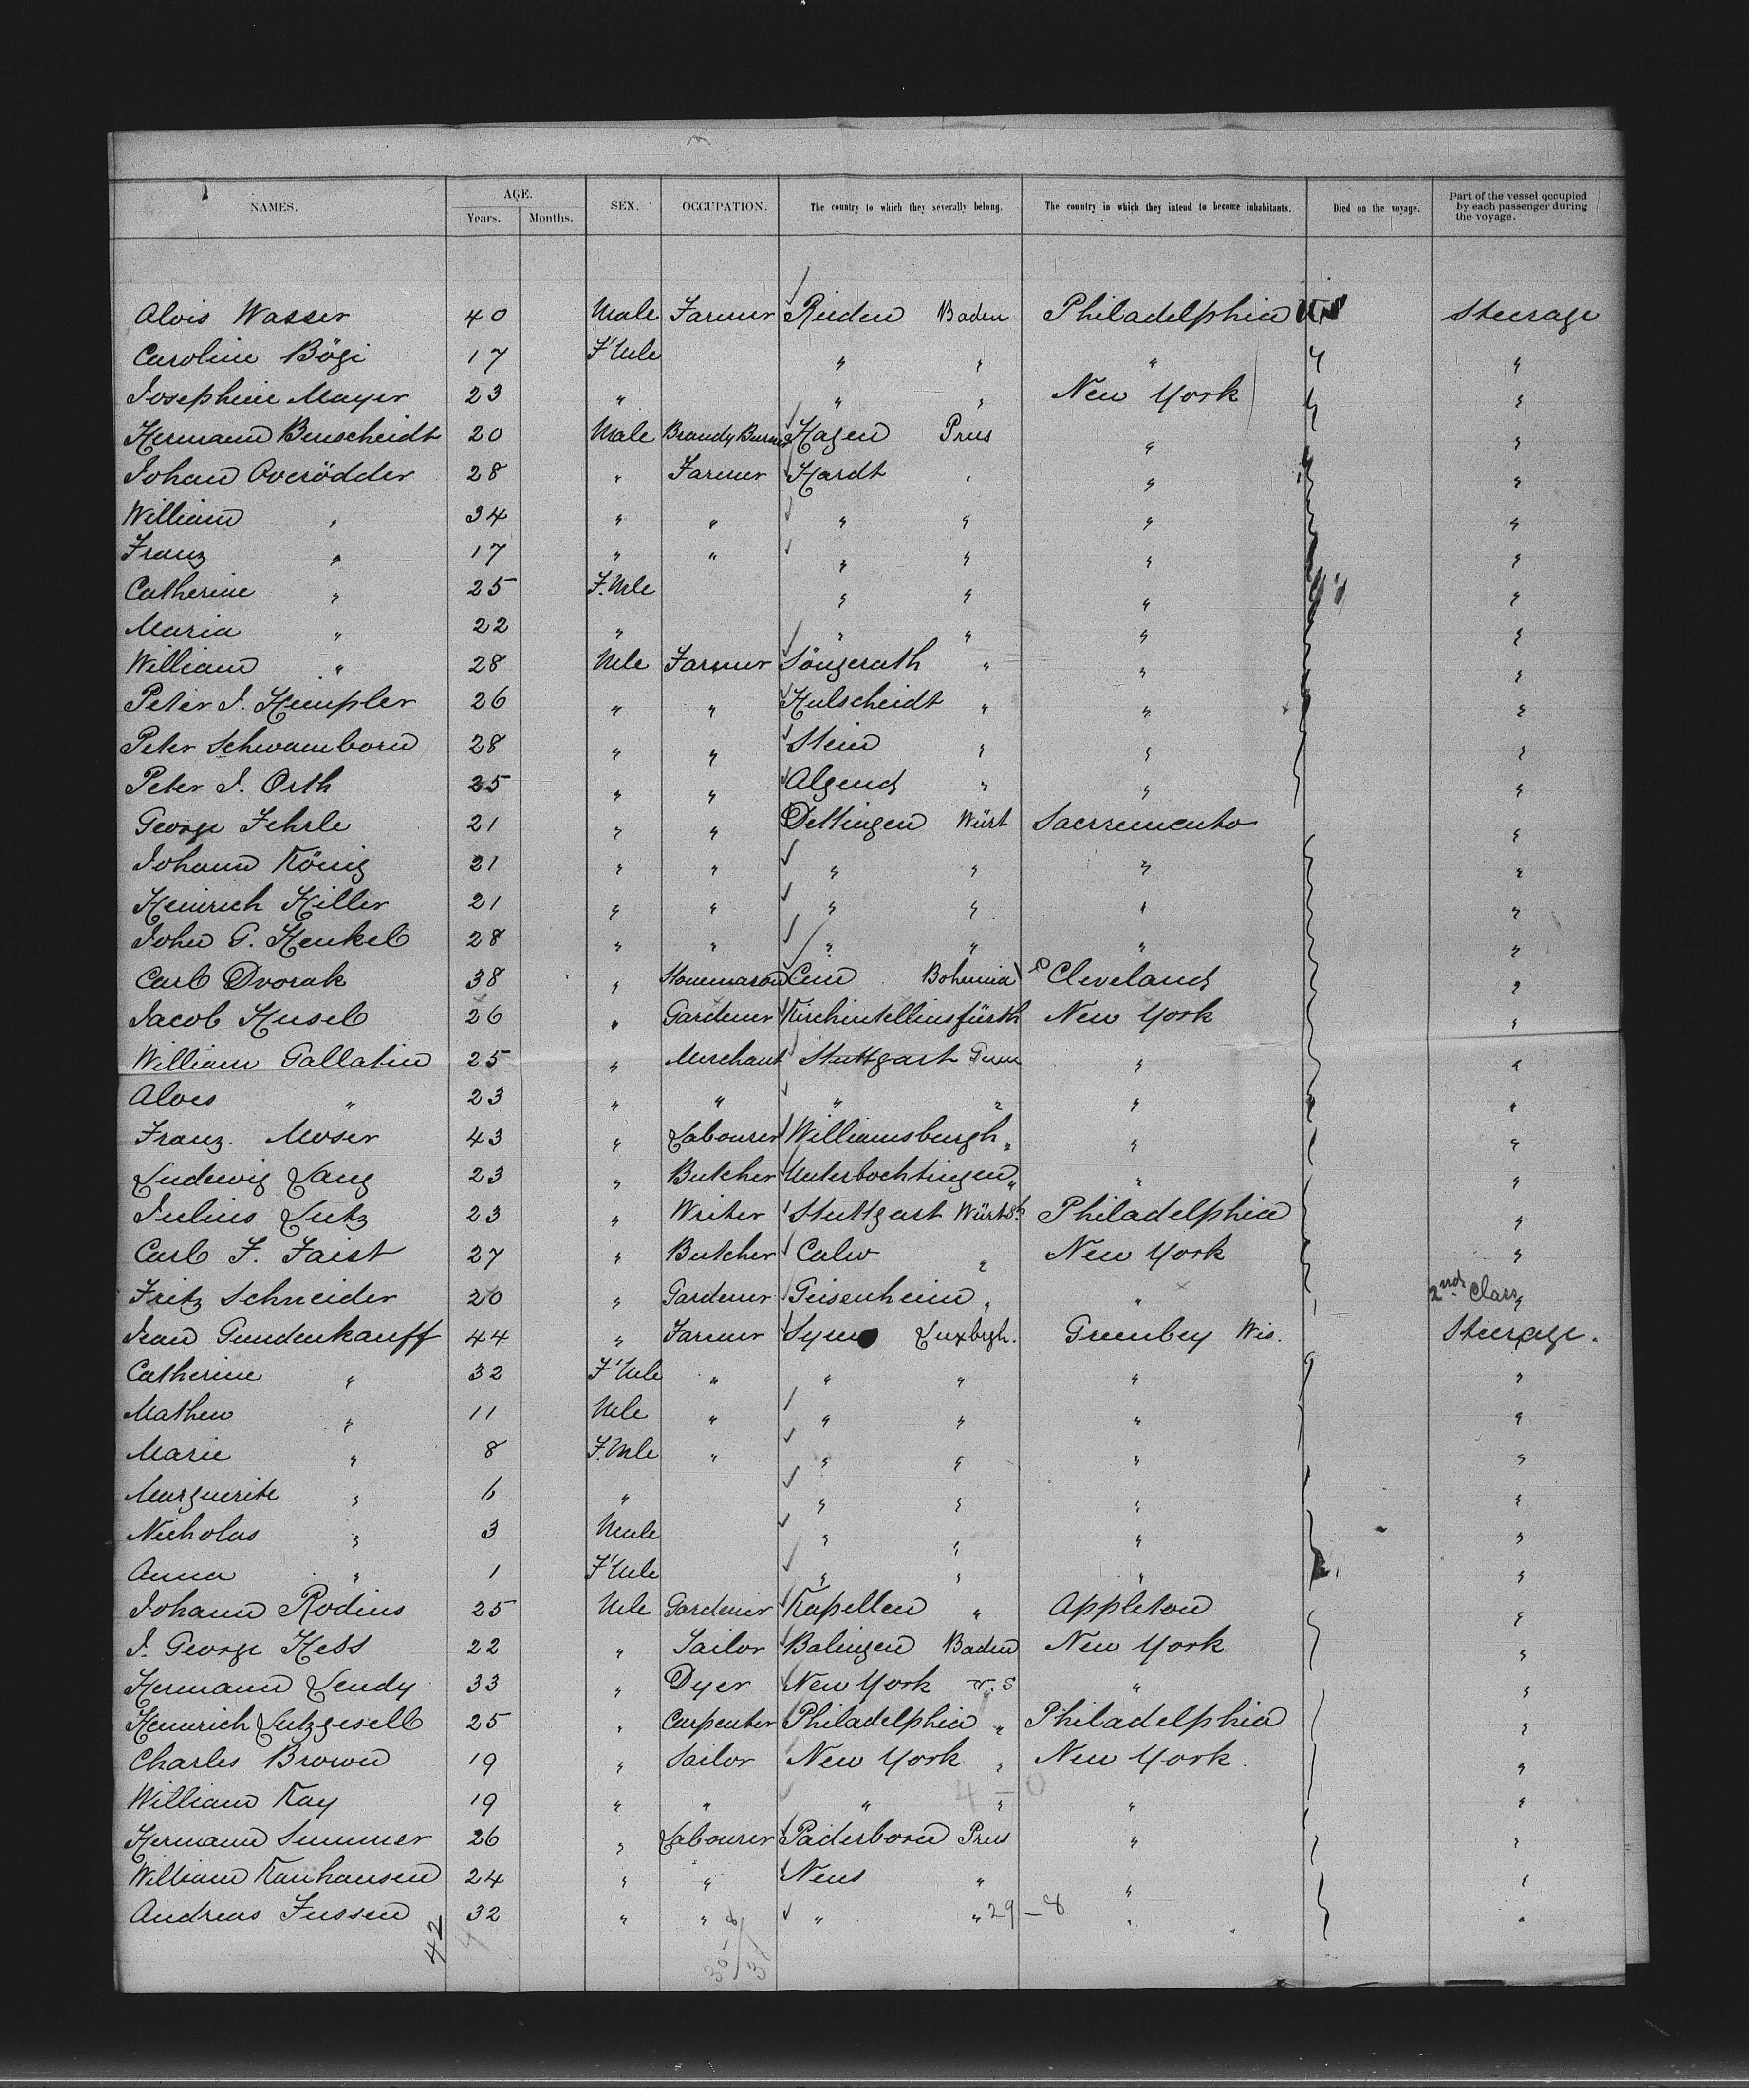 NAMES. AGE. Years. Months. SEX. OCCUPATION. The country to which they severally belong. The country in which they intend to become inhabitants. Died on the voyage. Part of the vessel occupied by each passenger during the voyage.
Alois Wasser 40 Male Farmer Rieden Baden Philadelphia U.S Steerage
Caroline Bögi 17 F'Mle " " " " "
Josephine Mayer 23 " " " New York "
Hermann Benscheidt 20 Male Brandy Burner Hagen Prus " "
Johann Overödder 28 " Farmer Hardt " " "
William " 34 " " " " " "
Franz " 17 " " " " " "
Catherine " 25 F.Mle " " " "
Maria " 22 " " " " "
William " 28 Mle Farmer Söngerath " " "
Peter J. Hempler 26 " " Hulscheidt " " "
Peter Schwamborn 28 " " Stein " " "
Peter J. Orth 25 " " Algend " " "
George Fehrle 21 " " Dettingen Würt Sacremento "
Johann König 21 " " " " " "
Heinrich Hiller 21 " " " " " "
John G. Henkel 28 " " " " " "
Carl Dvorak 38 " Stonemason Bohemia Cleveland "
Jacob Husel 26 " Gardener Kirchintellinsfürth New York "
William Gallatin 25 " Merchant Stuttgart Germ " "
Alois " 23 " " " " " "
Franz. Moser 43 " Labourer Williamsburgh " " "
Ludewig Lang 23 " Butcher Unterbochtingen " " "
Julius Lutz 23 " Writer Stuttgart Würtb Philadelphia "
Carl F. Faist 27 " Butcher Calw " New York "
Fritz Schneider 20 " Gardener Geisenheim " " 2nd Class
Jean Gundenkauff 44 " Farmer Syren Luxbrgh. Greenbey Wis. Steerage.
Catherine " 32 F'Mle " " " " "
Mathew " 11 Mle " " " " "
Marie " 8 F.Mle " " " " "
Marguerite " 6 " " " " "
Nicholas " 3 Male " " " "
Anna " 1 F'Mle " " " "
Johann Rodius 25 Mle Gardener Kapellen " Appleton "
J. George Hess 22 " Sailor Balingen Baden New York "
Hermann Lendy 33 " Dyer New York U.S " "
Heinrich Lutzgesell 25 " Carpenter Philadelphia " Philadelphia "
Charles Brown 19 " Sailor New York " New York. "
William Kay 19 " " " " 4-0 " "
Hermann Summer 26 " Labourer Paderborn Prus " "
William Kauhausen 24 " " Neus " " "
Andreas Jussen 32 " " " " 29-8 " "
42